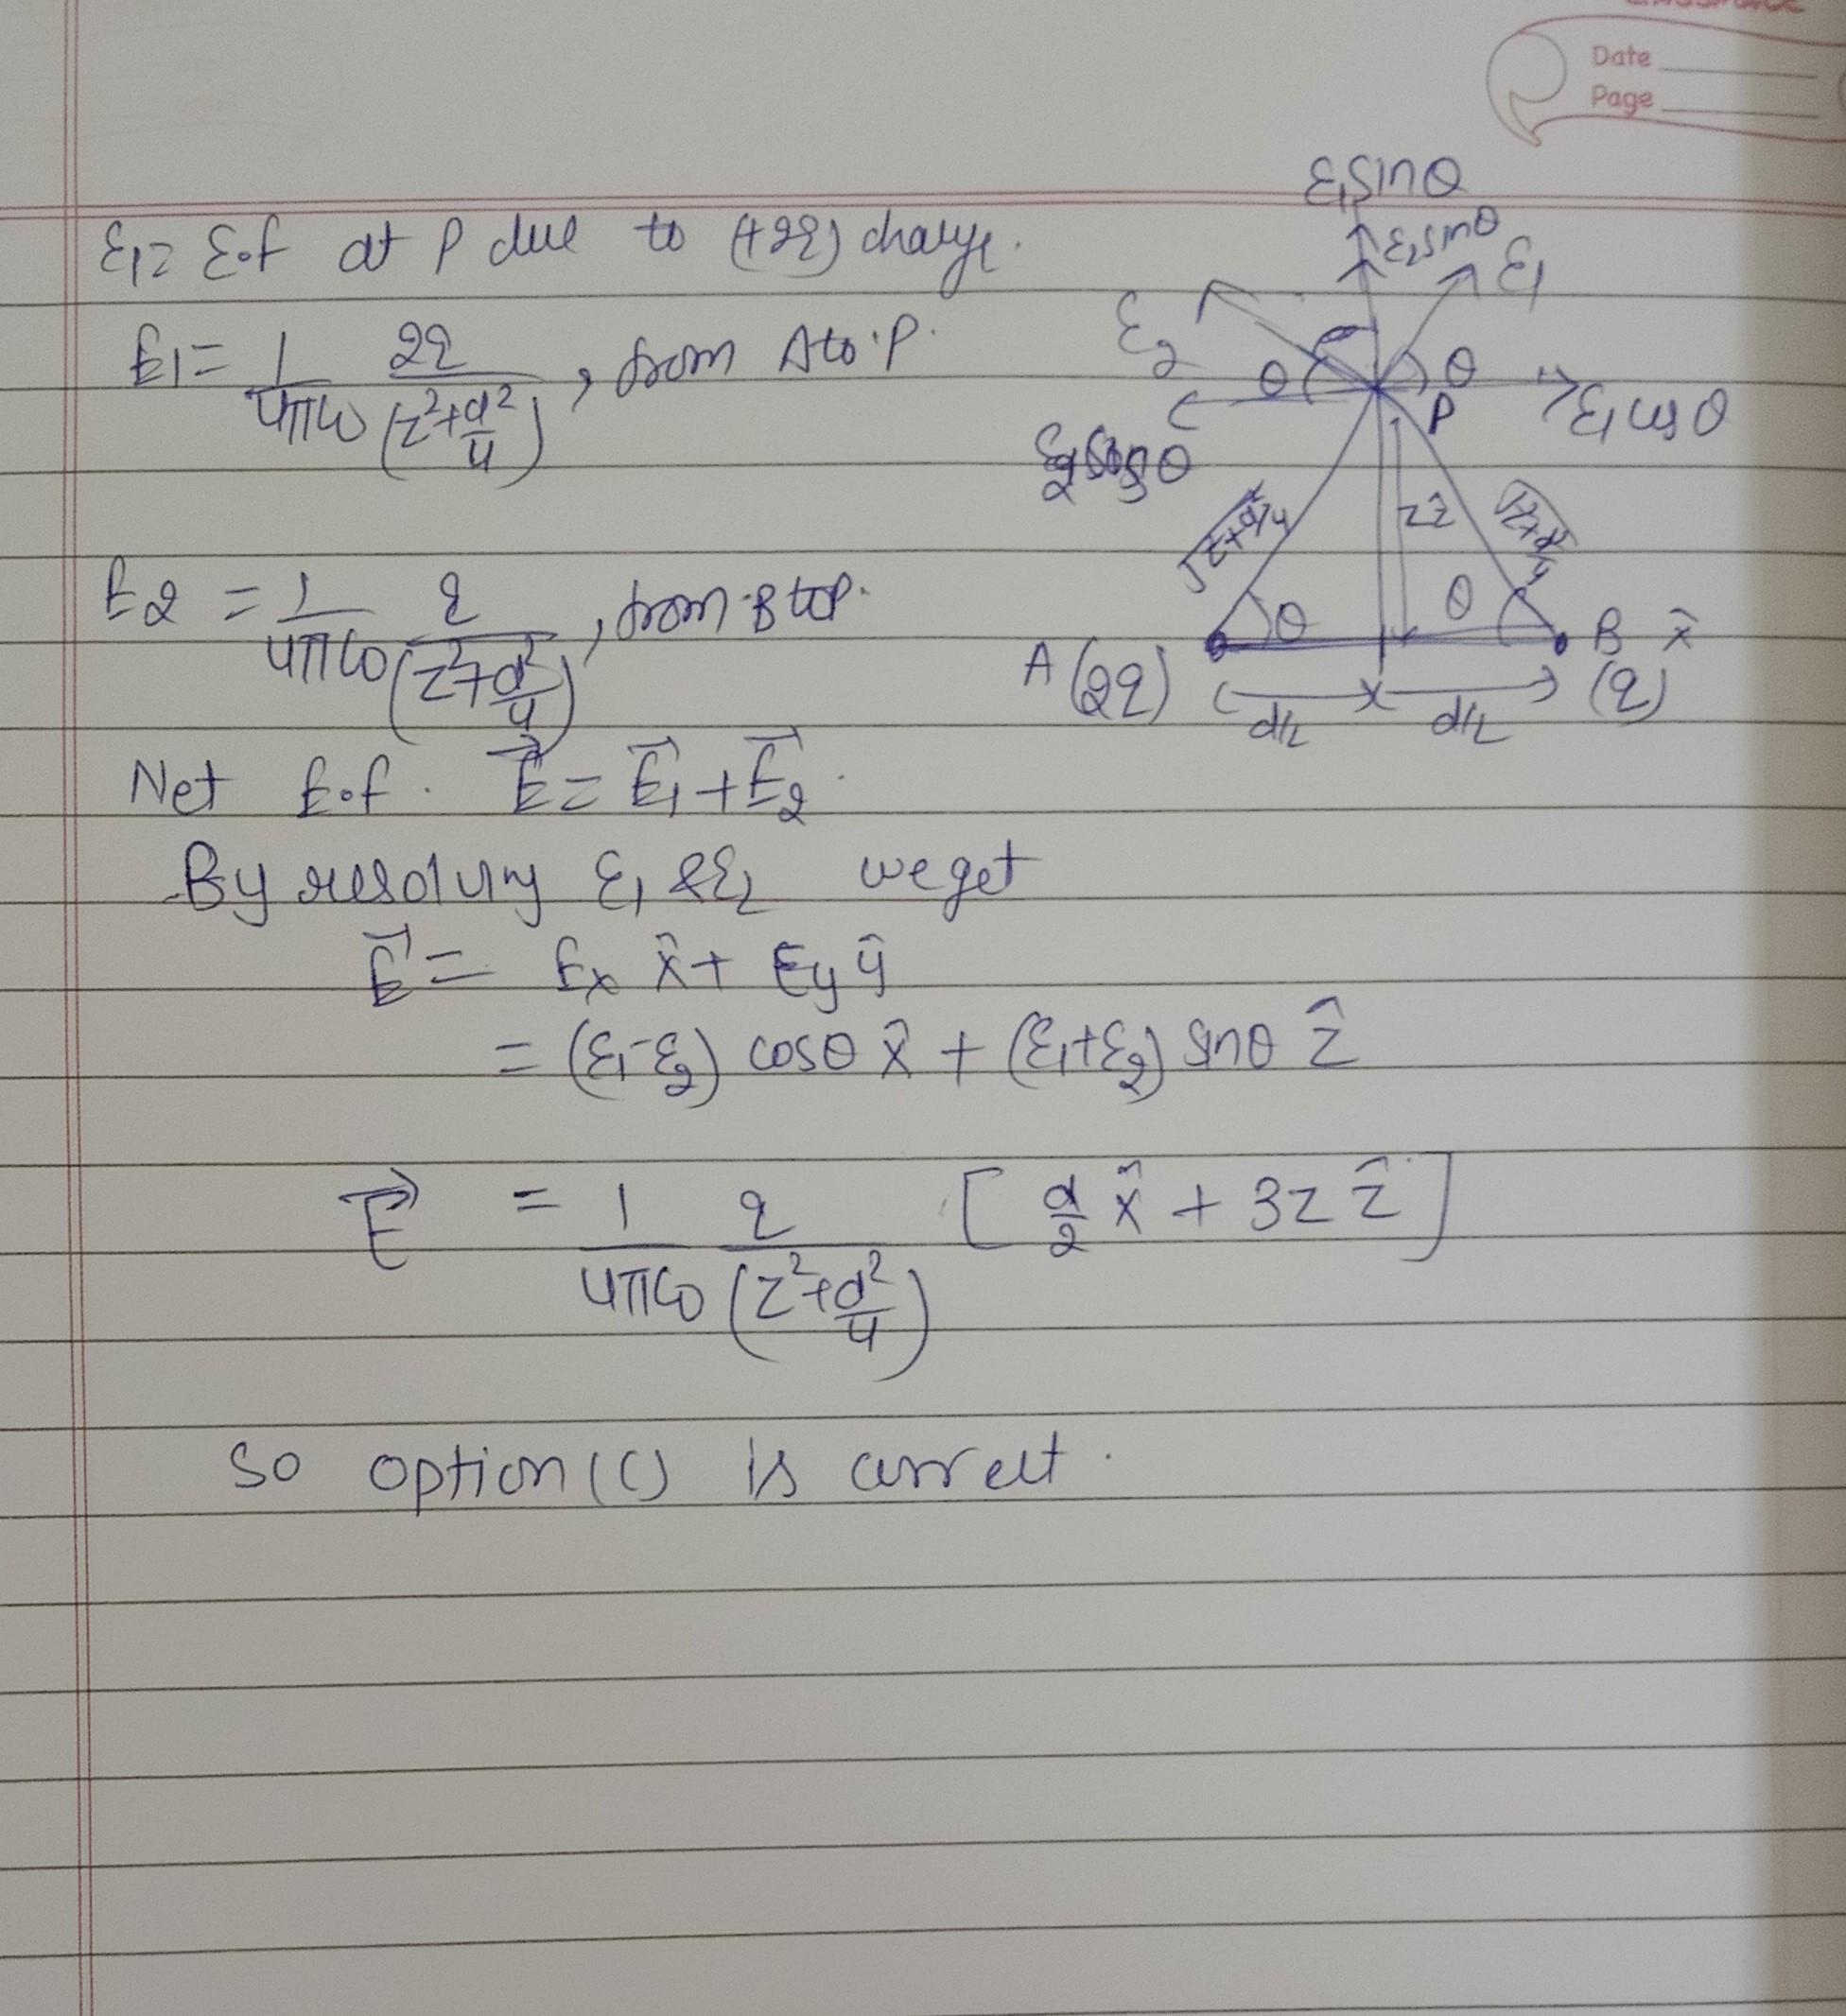 Date
Page
E₁ = E.f at P due to (+2q) charge.
E₁ = 1/4πϵ₀ 2q/(z²+d²/4), from A to P.
E₂ = 1/4πϵ₀ q/(z²+d²/4), from B to P.
Net E.f. E⃗ = E⃗₁ + E⃗₂.
By resolving E₁ & E₂ we get
E⃗ = Eₓ x̂ + Ey ŷ
= (E₁-E₂) cosθ x̂ + (E₁+E₂) sinθ ẑ
E⃗ = 1/4πϵ₀ q/(z²+d²/4) [d/2 x̂ + 3z ẑ]
So option (C) is correct.
E₁sinθ
E₂sinθ
E₁
E₂
θ
θ
P
E₁cosθ
E₂cosθ
√z²+d²/4
zẑ
√z²+d²/4
θ
θ
A (2q)
B x̂
(q)
d/2
d/2